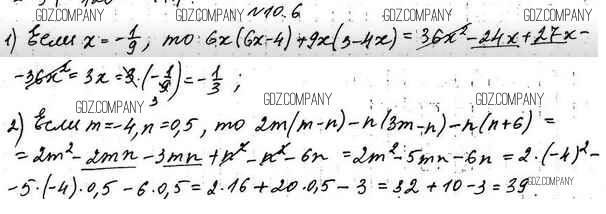 GDZ.COMPANY GDZ.COMPANY №10.6 GDZ.COMPANY
1) Если x = -1/9, то 6x(6x-4)+9x(3-4x) = 36x²-24x+27x-
-36x² = 3x = 3·(-1/9) = -1/3;
GDZ.COMPANY GDZ.COMPANY
2) Если m=-4, n=0,5, то 2m(m-n)-n(3m-n)-n(n+6) =
= 2m²-2mn-3mn+n²-n²-6n = 2m²-5mn-6n = 2·(-4)²-
-5·(-4)·0,5-6·0,5 = 2·16+20·0,5-3 = 32+10-3 = 39.
GDZ.COMPANY